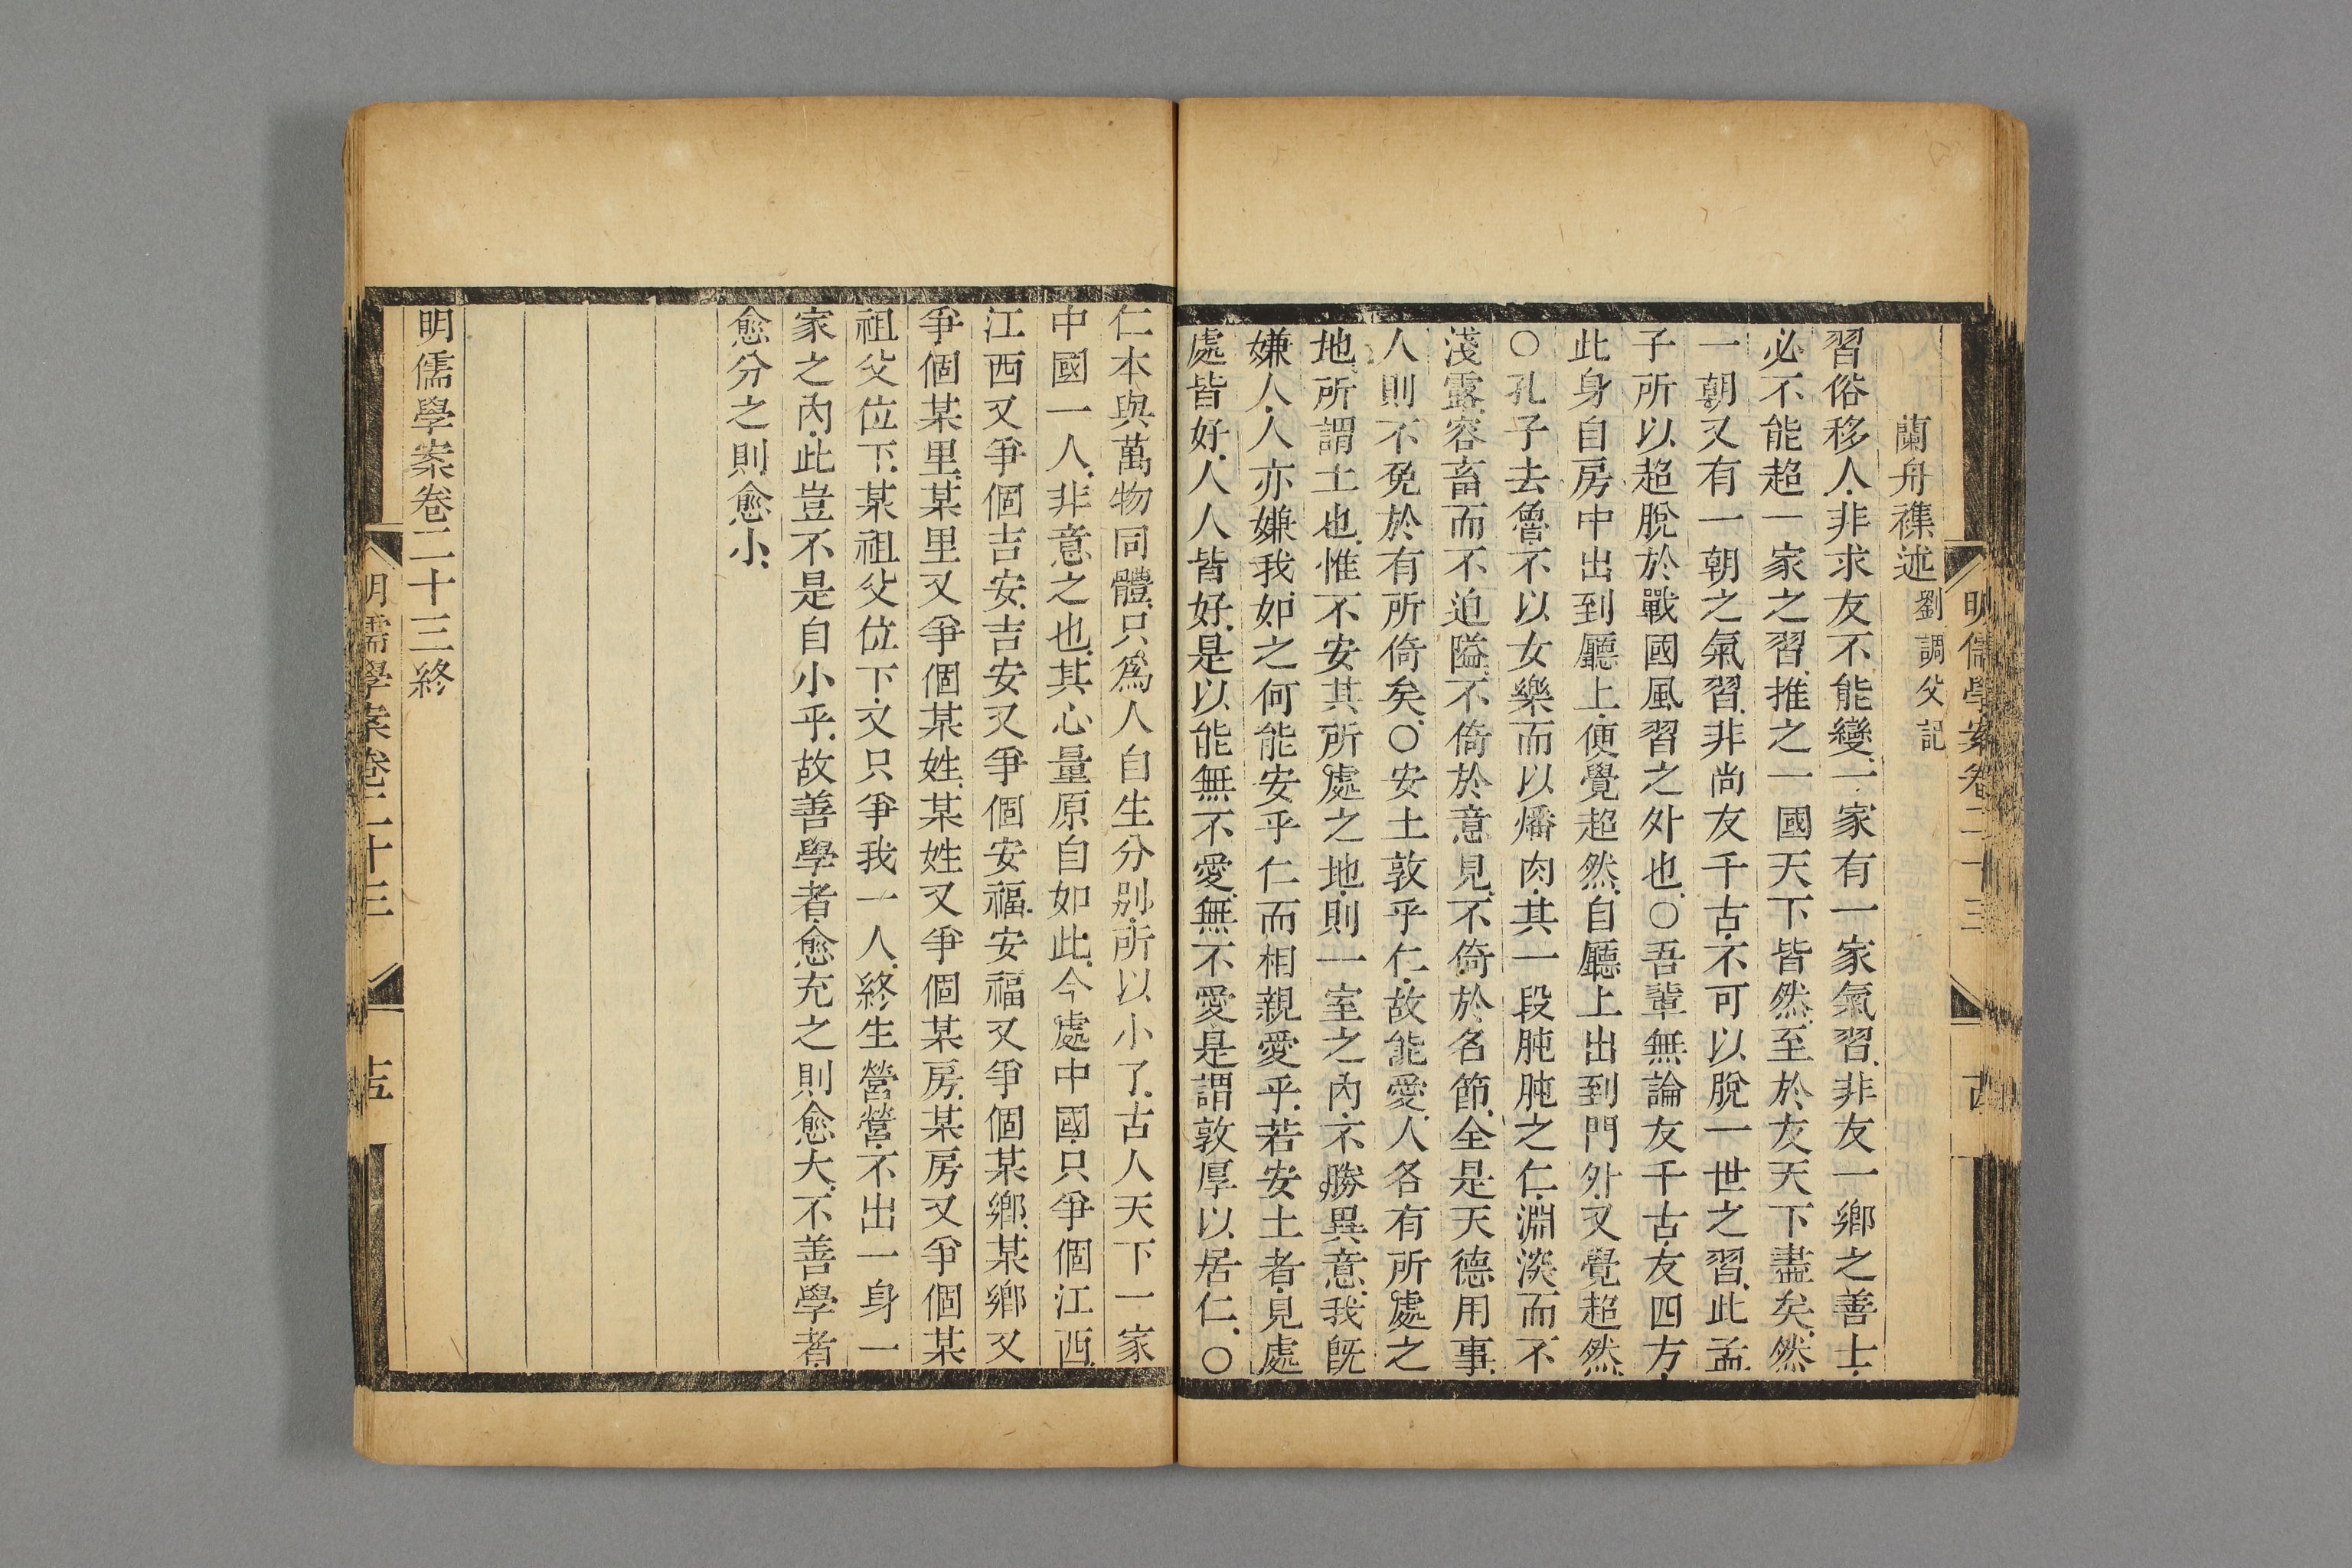 明儒學案卷二十三
蘭舟襍述劉調父記
習俗移人.非求友不能變.一家有一家氣習.非友一鄉之善士.
必不能超一家之習.推之一國天下皆然.至於友天下盡矣.然
一朝又有一朝之氣習.非尚友千古.不可以脫一世之習.此孟
子所以超脫於戰國風習之外也.○吾輩無論友千古.友四方.
此身自房中出到廳上.便覺超然.自廳上出到門外.又覺超然.
○孔子去魯.不以女樂而以燔肉.其一段肫肫之仁.淵淡而不
淺露.容畜而不迫隘.不倚於意見.不倚於名節.全是天德用事.
人則不免於有所倚矣.○安土敦乎仁.故能愛.人各有所處之
地.所謂土也.惟不安其所處之地.則一室之內.不勝異意.我旣
嫌人.人亦嫌我.如之何能安乎仁而相親愛乎.若安土者.見處
處皆好.人人皆好.是以能無不愛.無不愛是謂敦厚以居仁.○
仁本與萬物同體.只爲人自生分別.所以小了.古人天下一家
中國一人.非意之也.其心量原自如此.今處中國.只爭個江西.
江西又爭個吉安.吉安又爭個安福.安福又爭個某鄉.某鄉又
爭個某里.某里又爭個某姓.某姓又爭個某房.某房又爭個某
祖父位下.某祖父位下.又只爭我一人.終生營營.不出一身一
家之內.此豈不是自小乎.故善學者.愈充之則愈大.不善學者.
愈分之則愈小.
明儒學案卷二十三終
明儒學案卷二十三